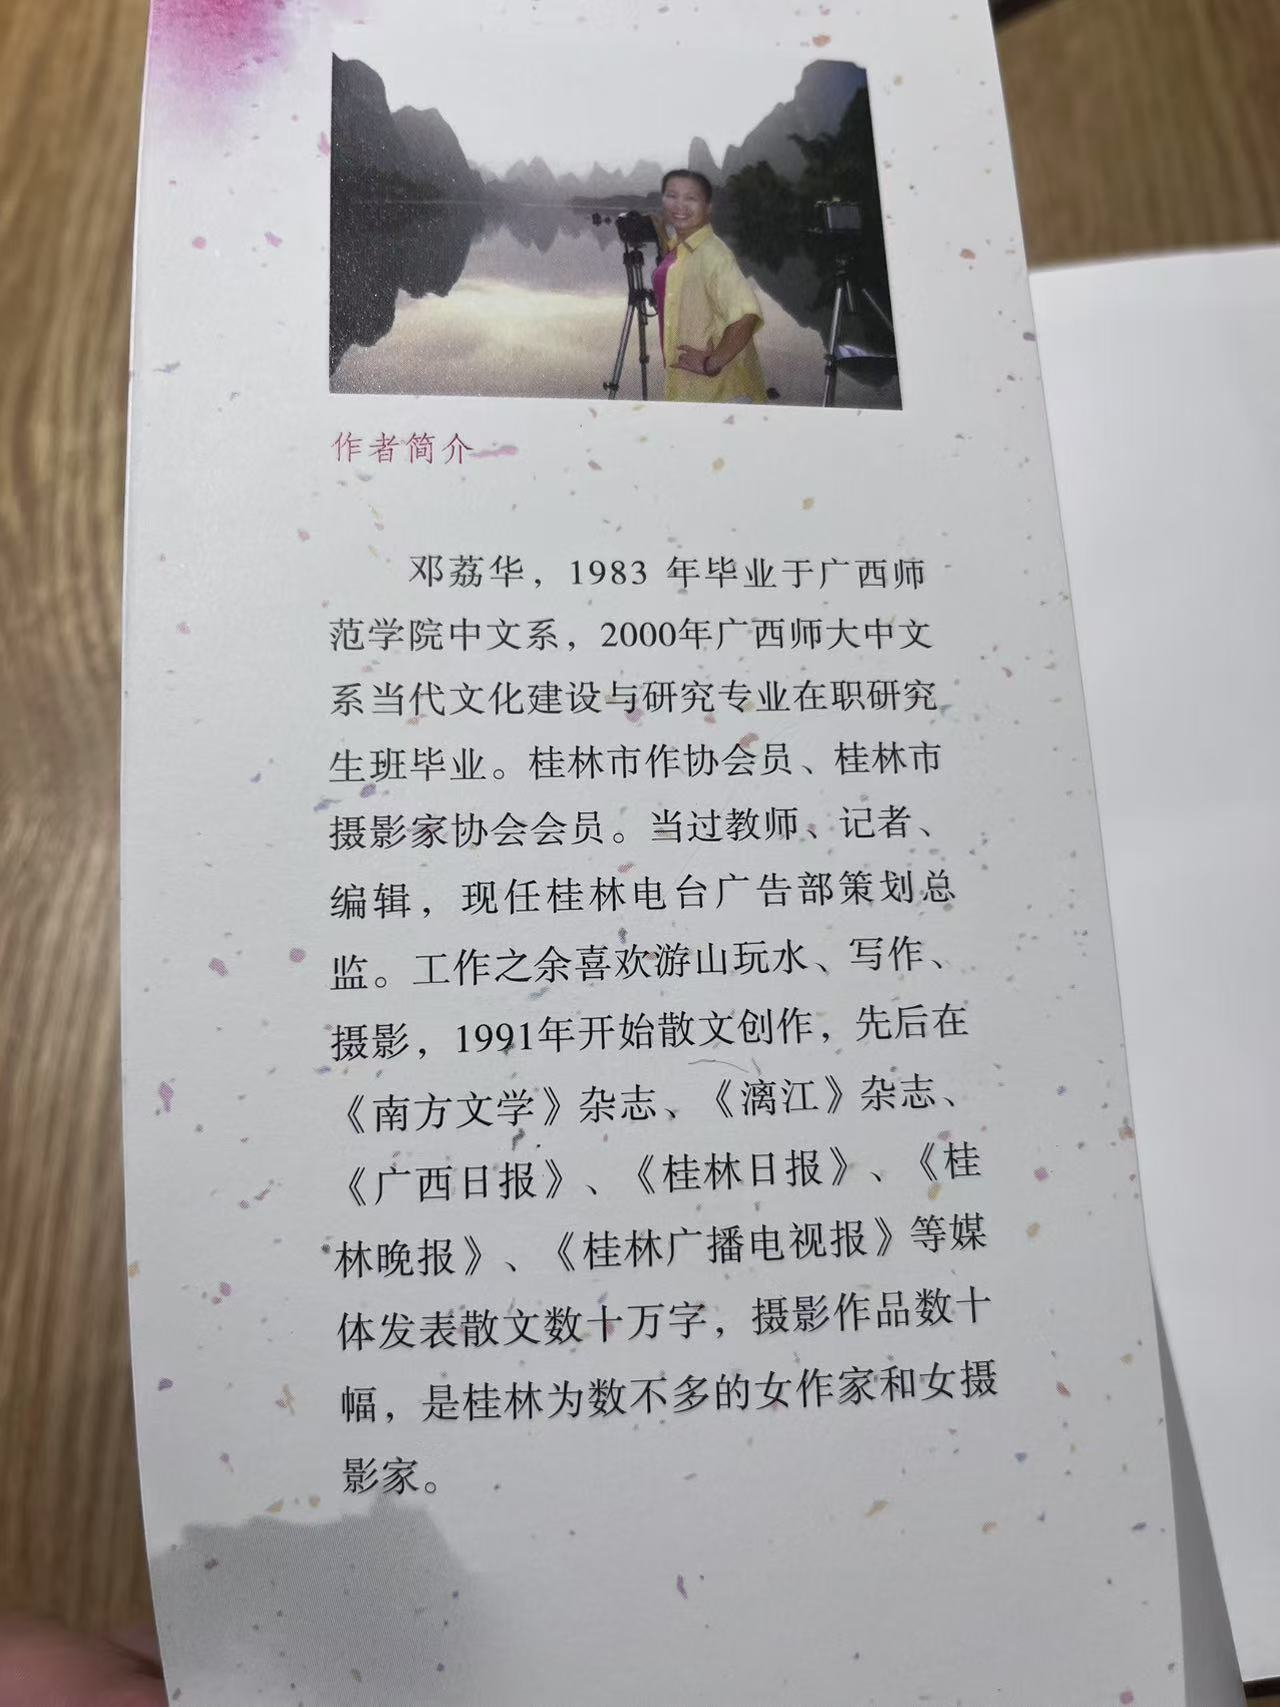 作者简介
邓荔华，1983 年毕业于广西师
范学院中文系，2000年广西师大中文
系当代文化建设与研究专业在职研究
生班毕业。桂林市作协会员、桂林市
摄影家协会会员。当过教师、记者、
编辑，现任桂林电台广告部策划总
监。工作之余喜欢游山玩水、写作、
摄影，1991年开始散文创作，先后在
《南方文学》杂志、《漓江》杂志、
《广西日报》、《桂林日报》、《桂
林晚报》、《桂林广播电视报》等媒
体发表散文数十万字，摄影作品数十
幅，是桂林为数不多的女作家和女摄
影家。